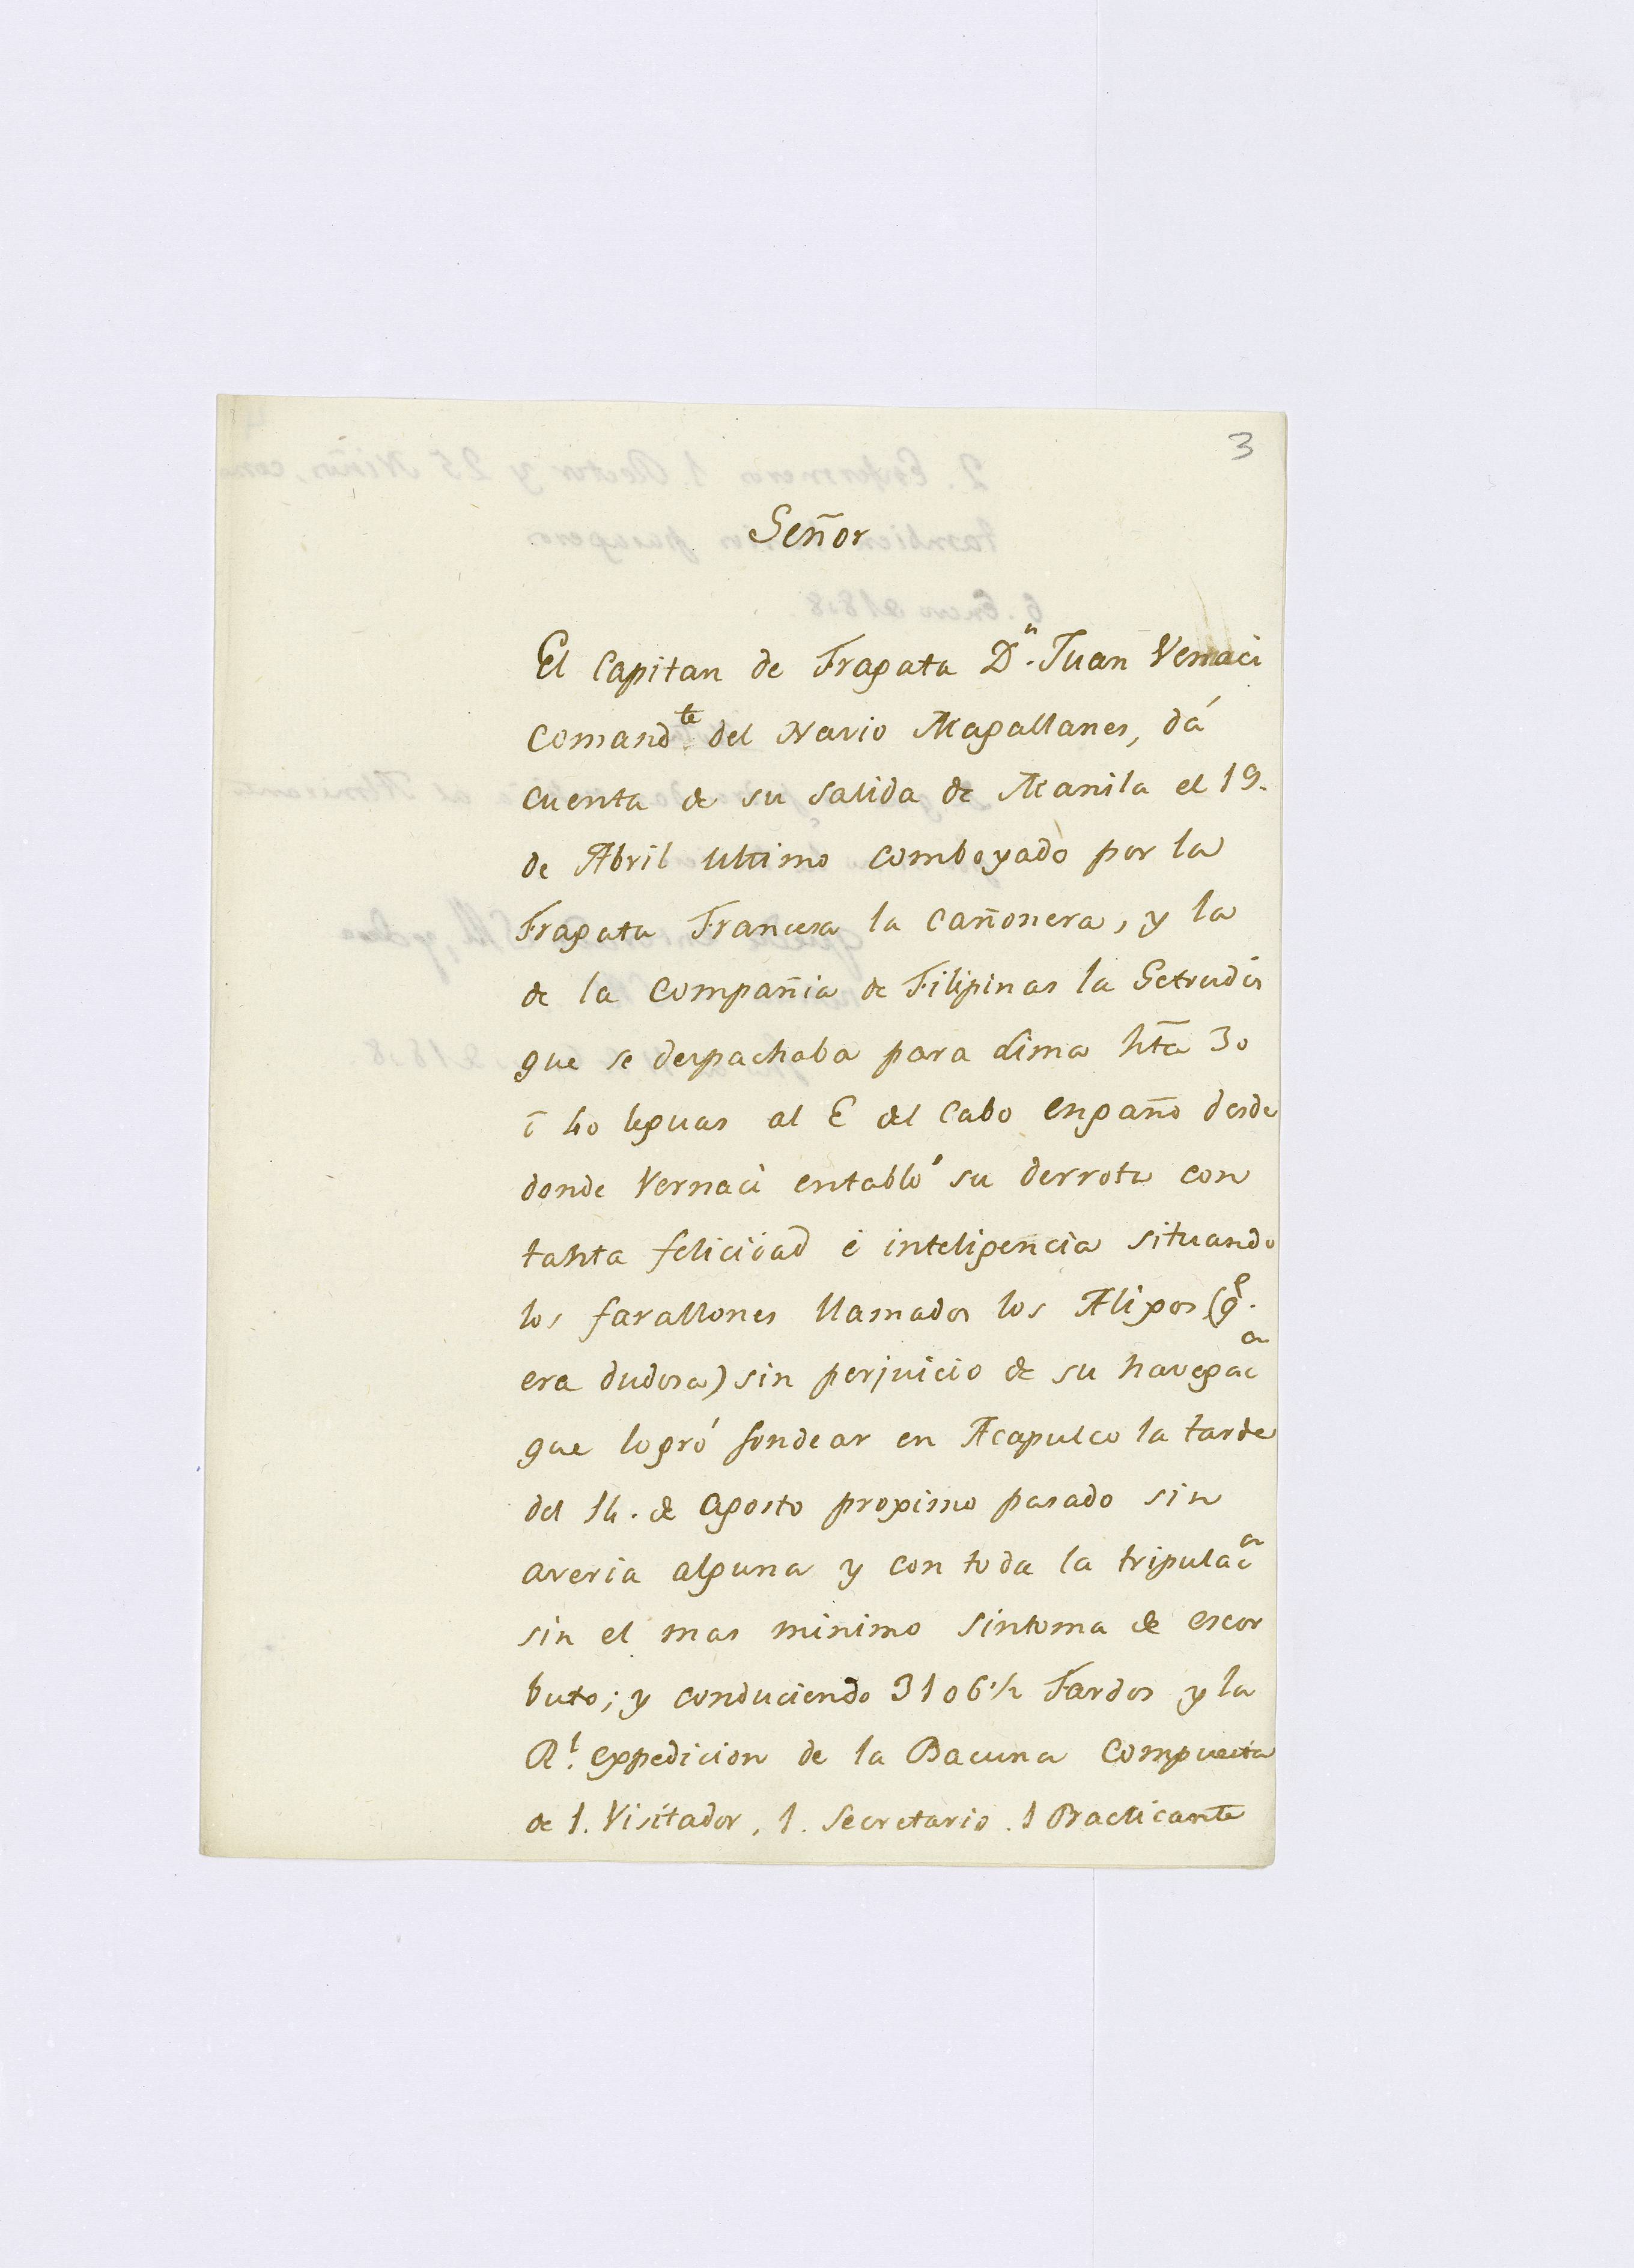 3
Señor
El Capitan de Fragata Dn. Juan Vernaci
Comandte. del Navio Magallanes, dá
cuenta de su salida de Manila el 19.
de Abril ultimo comboyado por la
Fragata Francesa la Cañonera, y la
de la Compañia de Filipinas la Getrudis
que se despachaba para Lima hta 30
ō 40 leguas al E del Cabo engaño desde
donde Vernaci entabló su derrota con
tanta felicidad é inteligencia situando
los farallones llamados los Alijos (qe.
era dudosa) sin perjuicio de su navegacn
que logró fondear en Acapulco la tarde
del 14. de Agosto proximo pasado sin
averia alguna y con toda la tripulacn
sin el mas minimo sintoma de escor
buto; y conduciendo 3106 1/2 Fardos y la
Rl. expedicion de la Bacuna Compuesta
de 1. Visitador, 1. Secretario. 1 Practicante